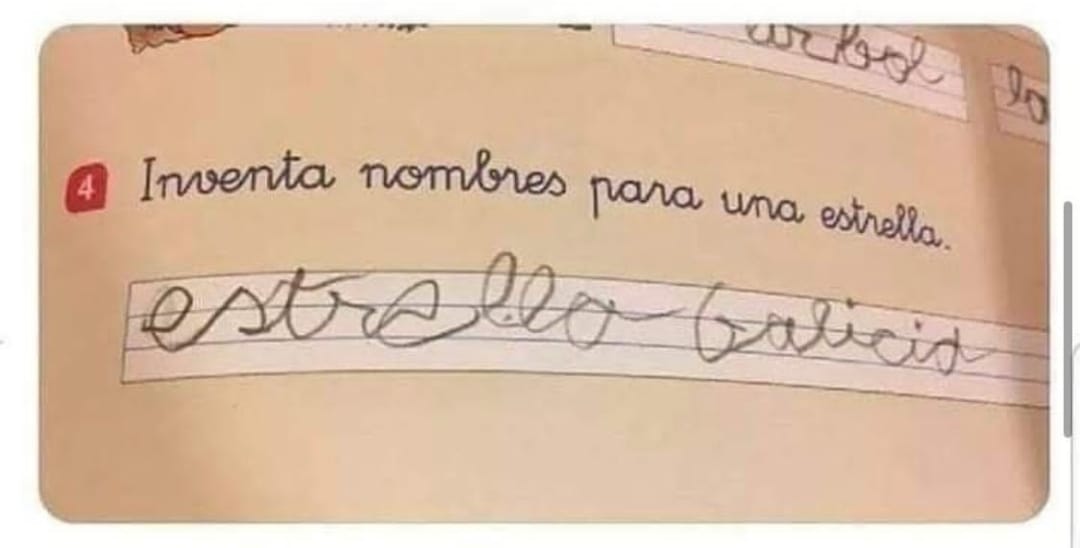 arbol
la
4 Inventa nombres para una estrella.
estrella Galicia